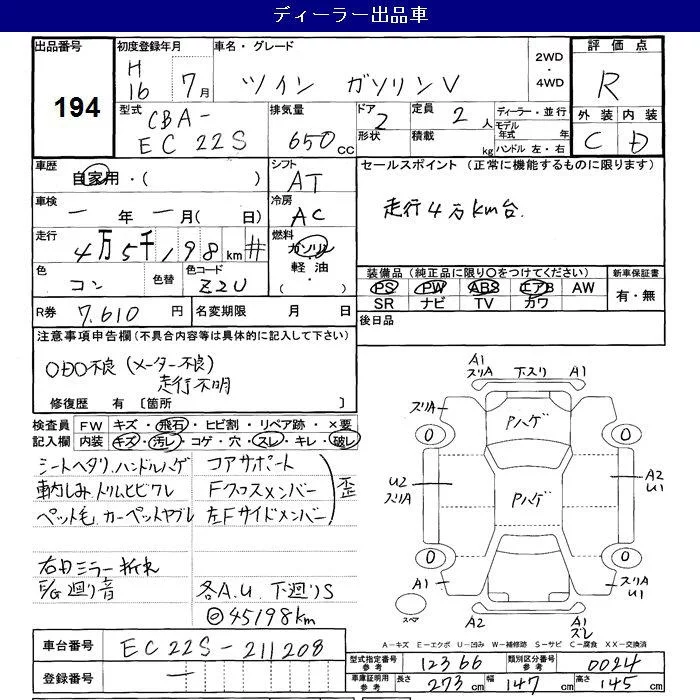 ディーラー出品車
出品番号 194
初度登録年月 H 16 7月
車名・グレード ツイン ガソリンV
2WD・4WD
評価点 R
外装 内装
C D
型式 CBA- EC22S
排気量 650cc
ドア 2
形状
定員 2人
積載 kg
ディーラー・並行
モデル年式 年
ハンドル 左・右
車歴 自家用・( )
シフト AT
セールスポイント (正常に機能するものに限ります)
走行4万km台.
車検 一年一月( 日)
冷房 AC
走行 4万5千198km #
燃料 ガソリン・軽油・( )
色 コン
色替
色コード Z2U
装備品 (純正品に限り〇をつけてください)
PS PW ABS エアB AW
SR ナビ TV カワ
新車保証書
有・無
R券 7.610円
名変期限 月 日
後日品
注意事項申告欄(不具合内容等は具体的に記入して下さい)
ODO不良(メーター不良)
走行不明
修復歴 有 〔箇所
検査員記入欄
FW キズ・飛石・ヒビ割・リペア跡・×要
内装 キズ・汚レ・コゲ・穴・スレ・キレ・破レ
シートヘタリ、ハンドルハゲ
車内しみ、トリムヒビワレ
ペット毛、カーペットヤブレ
コアサポート
Fクロスメンバー
左Fサイドメンバー
歪
右ドミラー折れ
E/G廻り音
各A.U. 下廻りS
◎45198km
A1 スリA 下スリ A1
スリA
Pハゲ
0 0
U2 スリA
Pハゲ
A2 U1
0 0
A1
スリA U1
スペア
A2
A1 スレ
A-キズ E-エクボ U-凹み W-補修跡 S-サビ C-腐食 XX-交換済
車台番号 EC22S-211208
登録番号 一
型式指定番号 参考 12366
類別区分番号 参考 0024
車庫証明用 参考 長さ 273cm 幅 147cm 高さ 145cm